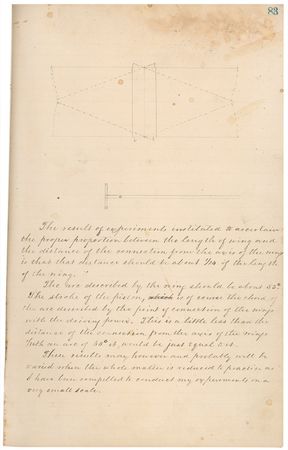 83
The result of experiments instituted to ascertain
the proper proportion between the length of wing and
the distance of the connection from the axis of the wing
is that that distance should be about 1/14 of the length
of the wing."
The arc described by the wing should be about 55°
& the stroke of the piston, which is of course the chord of
the arc described by the point of connection of the wings
with the driving power. This is a little less than the
distance of the connection from the axis of the wings
With an arc of 60° it would be just equal to it.
These results may however and probably will be
varied when the whole matter is reduced to practice as
I have been compelled to conduct my experiments on a
very small scale.